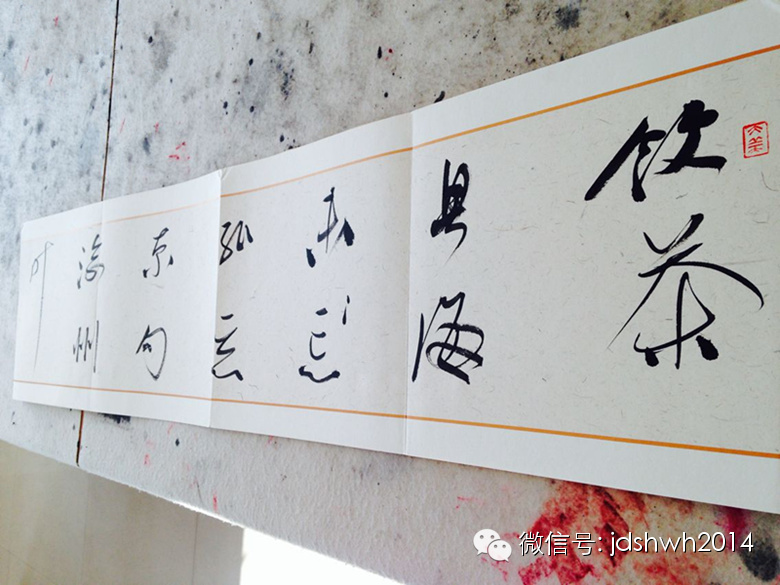 饮茶
海
未忘
孤云
京句
叶
微信号: jdshwh2014